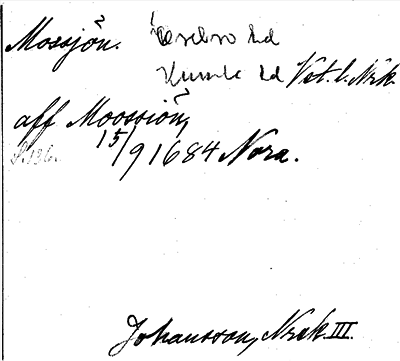 Mossjön. Örebro hd
Kumla hd Vst. l. Nrk.
aff Moossiön,
S. 136. 15/9 1684 Nora.
Johansson, Nrek III.